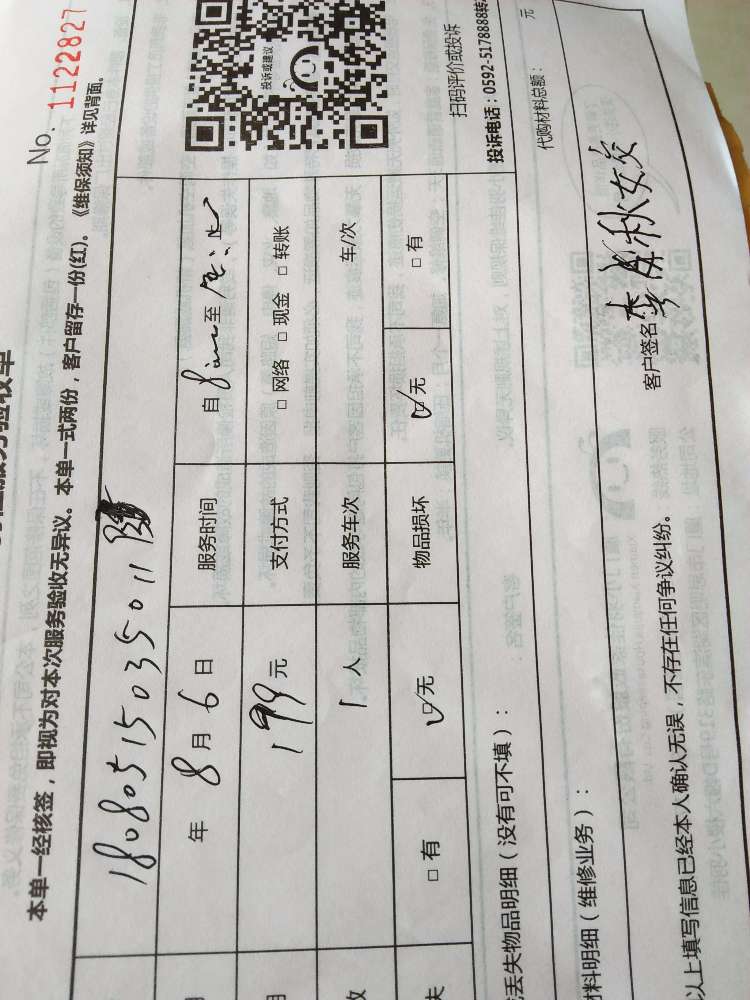 No. 1122827
本单一经核签，即视为对本次服务验收无异议。本单一式两份，客户留存一份(红)。《维保须知》详见背面。
18080515035011
年 8 月 6 日 服务时间 自 8 至
199 元 支付方式 □ 网络 □ 现金 □ 转账
1 人 服务车次 车/次
□ 有 ☑ 无 物品损坏 ☑ 无 □ 有
投诉或建议
扫码评价或投诉
投诉电话：0592-5178888转
丢失物品明细（没有可不填）：
料明细（维修业务）：
代购材料总额： 元
以上填写信息已经本人确认无误，不存在任何争议纠纷。
客户签名